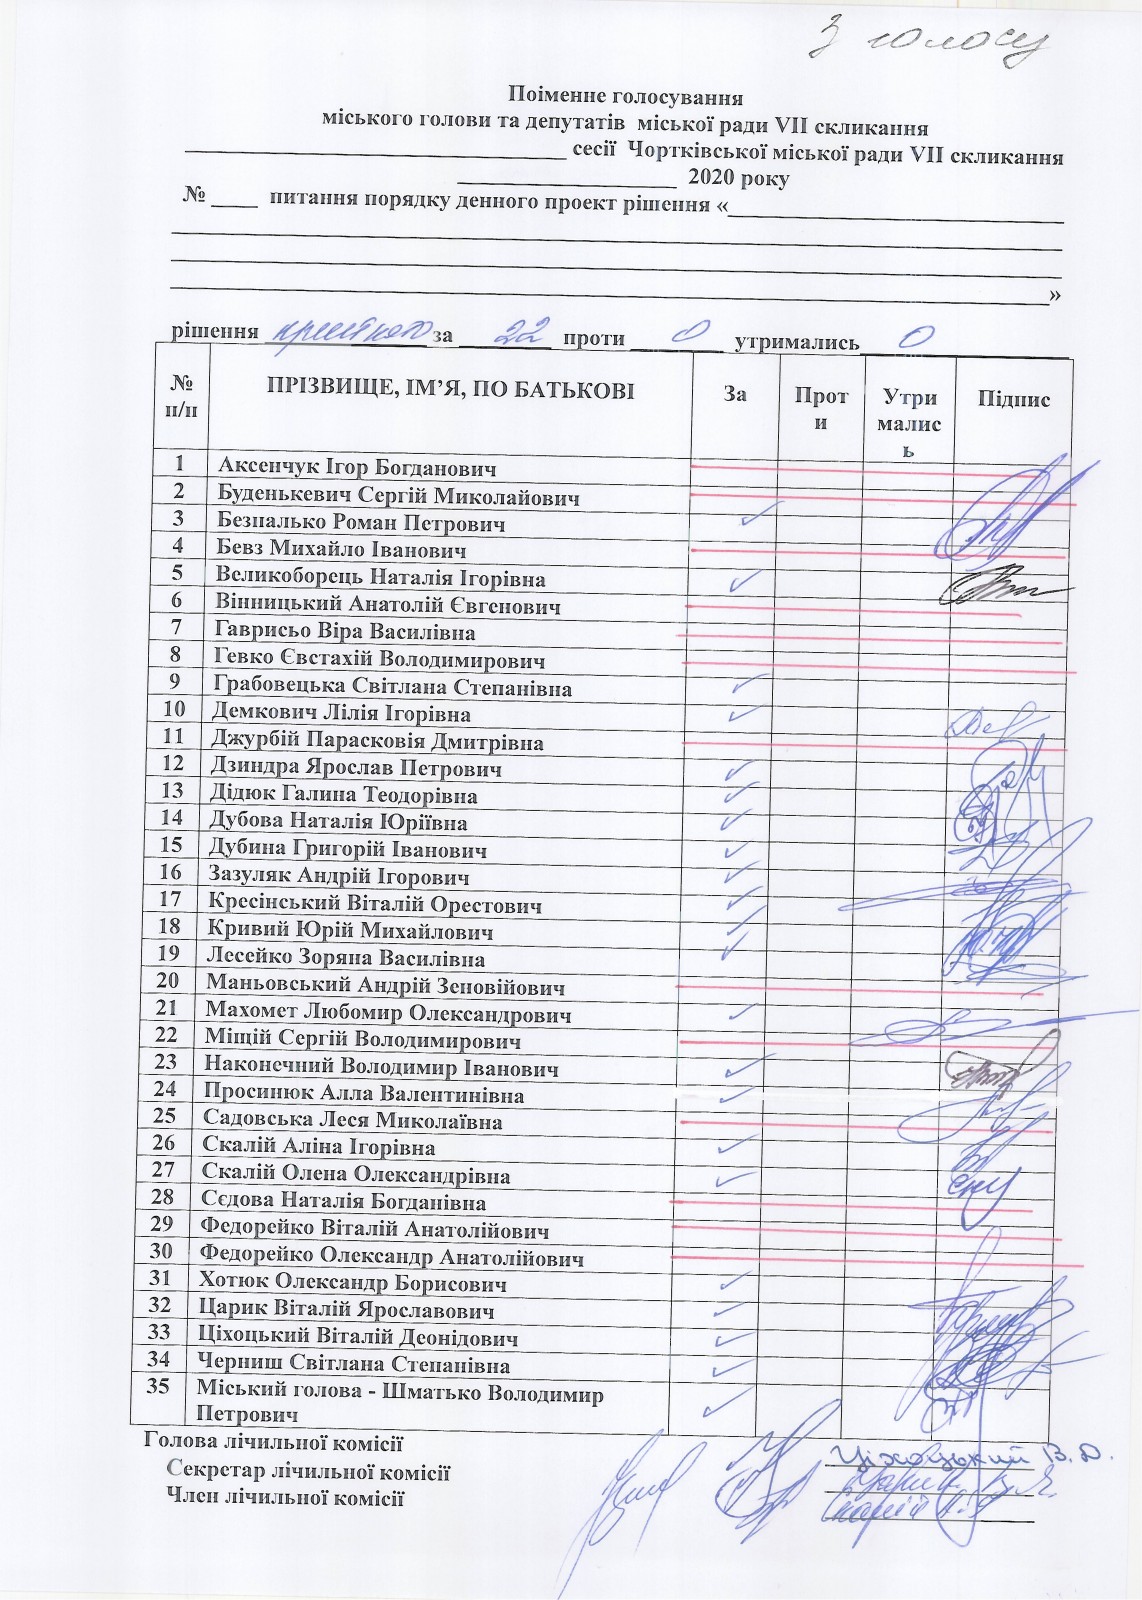 З голосу
Поіменне голосування
міського голови та депутатів міської ради VII скликання
сесії Чортківської міської ради VII скликання
2020 року
№ ____ питання порядку денного проект рішення «
»
рішення прийнято за 22 проти 0 утримались 0
№ п/п ПРІЗВИЩЕ, ІМ’Я, ПО БАТЬКОВІ За Прот и Утри малис ь Підпис
1 Аксенчук Ігор Богданович
2 Буденькевич Сергій Миколайович
3 Безпалько Роман Петрович ✓
4 Бевз Михайло Іванович
5 Великоборець Наталія Ігорівна ✓
6 Вінницький Анатолій Євгенович
7 Гаврисьо Віра Василівна
8 Гевко Євстахій Володимирович
9 Грабовецька Світлана Степанівна ✓
10 Демкович Лілія Ігорівна ✓
11 Джурбій Парасковія Дмитрівна
12 Дзиндра Ярослав Петрович ✓
13 Дідюк Галина Теодорівна ✓
14 Дубова Наталія Юріївна ✓
15 Дубина Григорій Іванович ✓
16 Зазуляк Андрій Ігорович ✓
17 Кресінський Віталій Орестович ✓
18 Кривий Юрій Михайлович ✓
19 Лесейко Зоряна Василівна ✓
20 Маньовський Андрій Зеновійович
21 Махомет Любомир Олександрович ✓
22 Міщій Сергій Володимирович
23 Наконечний Володимир Іванович ✓
24 Просинюк Алла Валентинівна ✓
25 Садовська Леся Миколаївна
26 Скалій Аліна Ігорівна ✓
27 Скалій Олена Олександрівна ✓
28 Сєдова Наталія Богданівна
29 Федорейко Віталій Анатолійович
30 Федорейко Олександр Анатолійович
31 Хотюк Олександр Борисович ✓
32 Царик Віталій Ярославович ✓
33 Ціхоцький Віталій Деонідович ✓
34 Черниш Світлана Степанівна ✓
35 Міський голова - Шматько Володимир Петрович ✓
Голова лічильної комісії Ціхоцький В.Д.
Секретар лічильної комісії Царик В.Я.
Член лічильної комісії